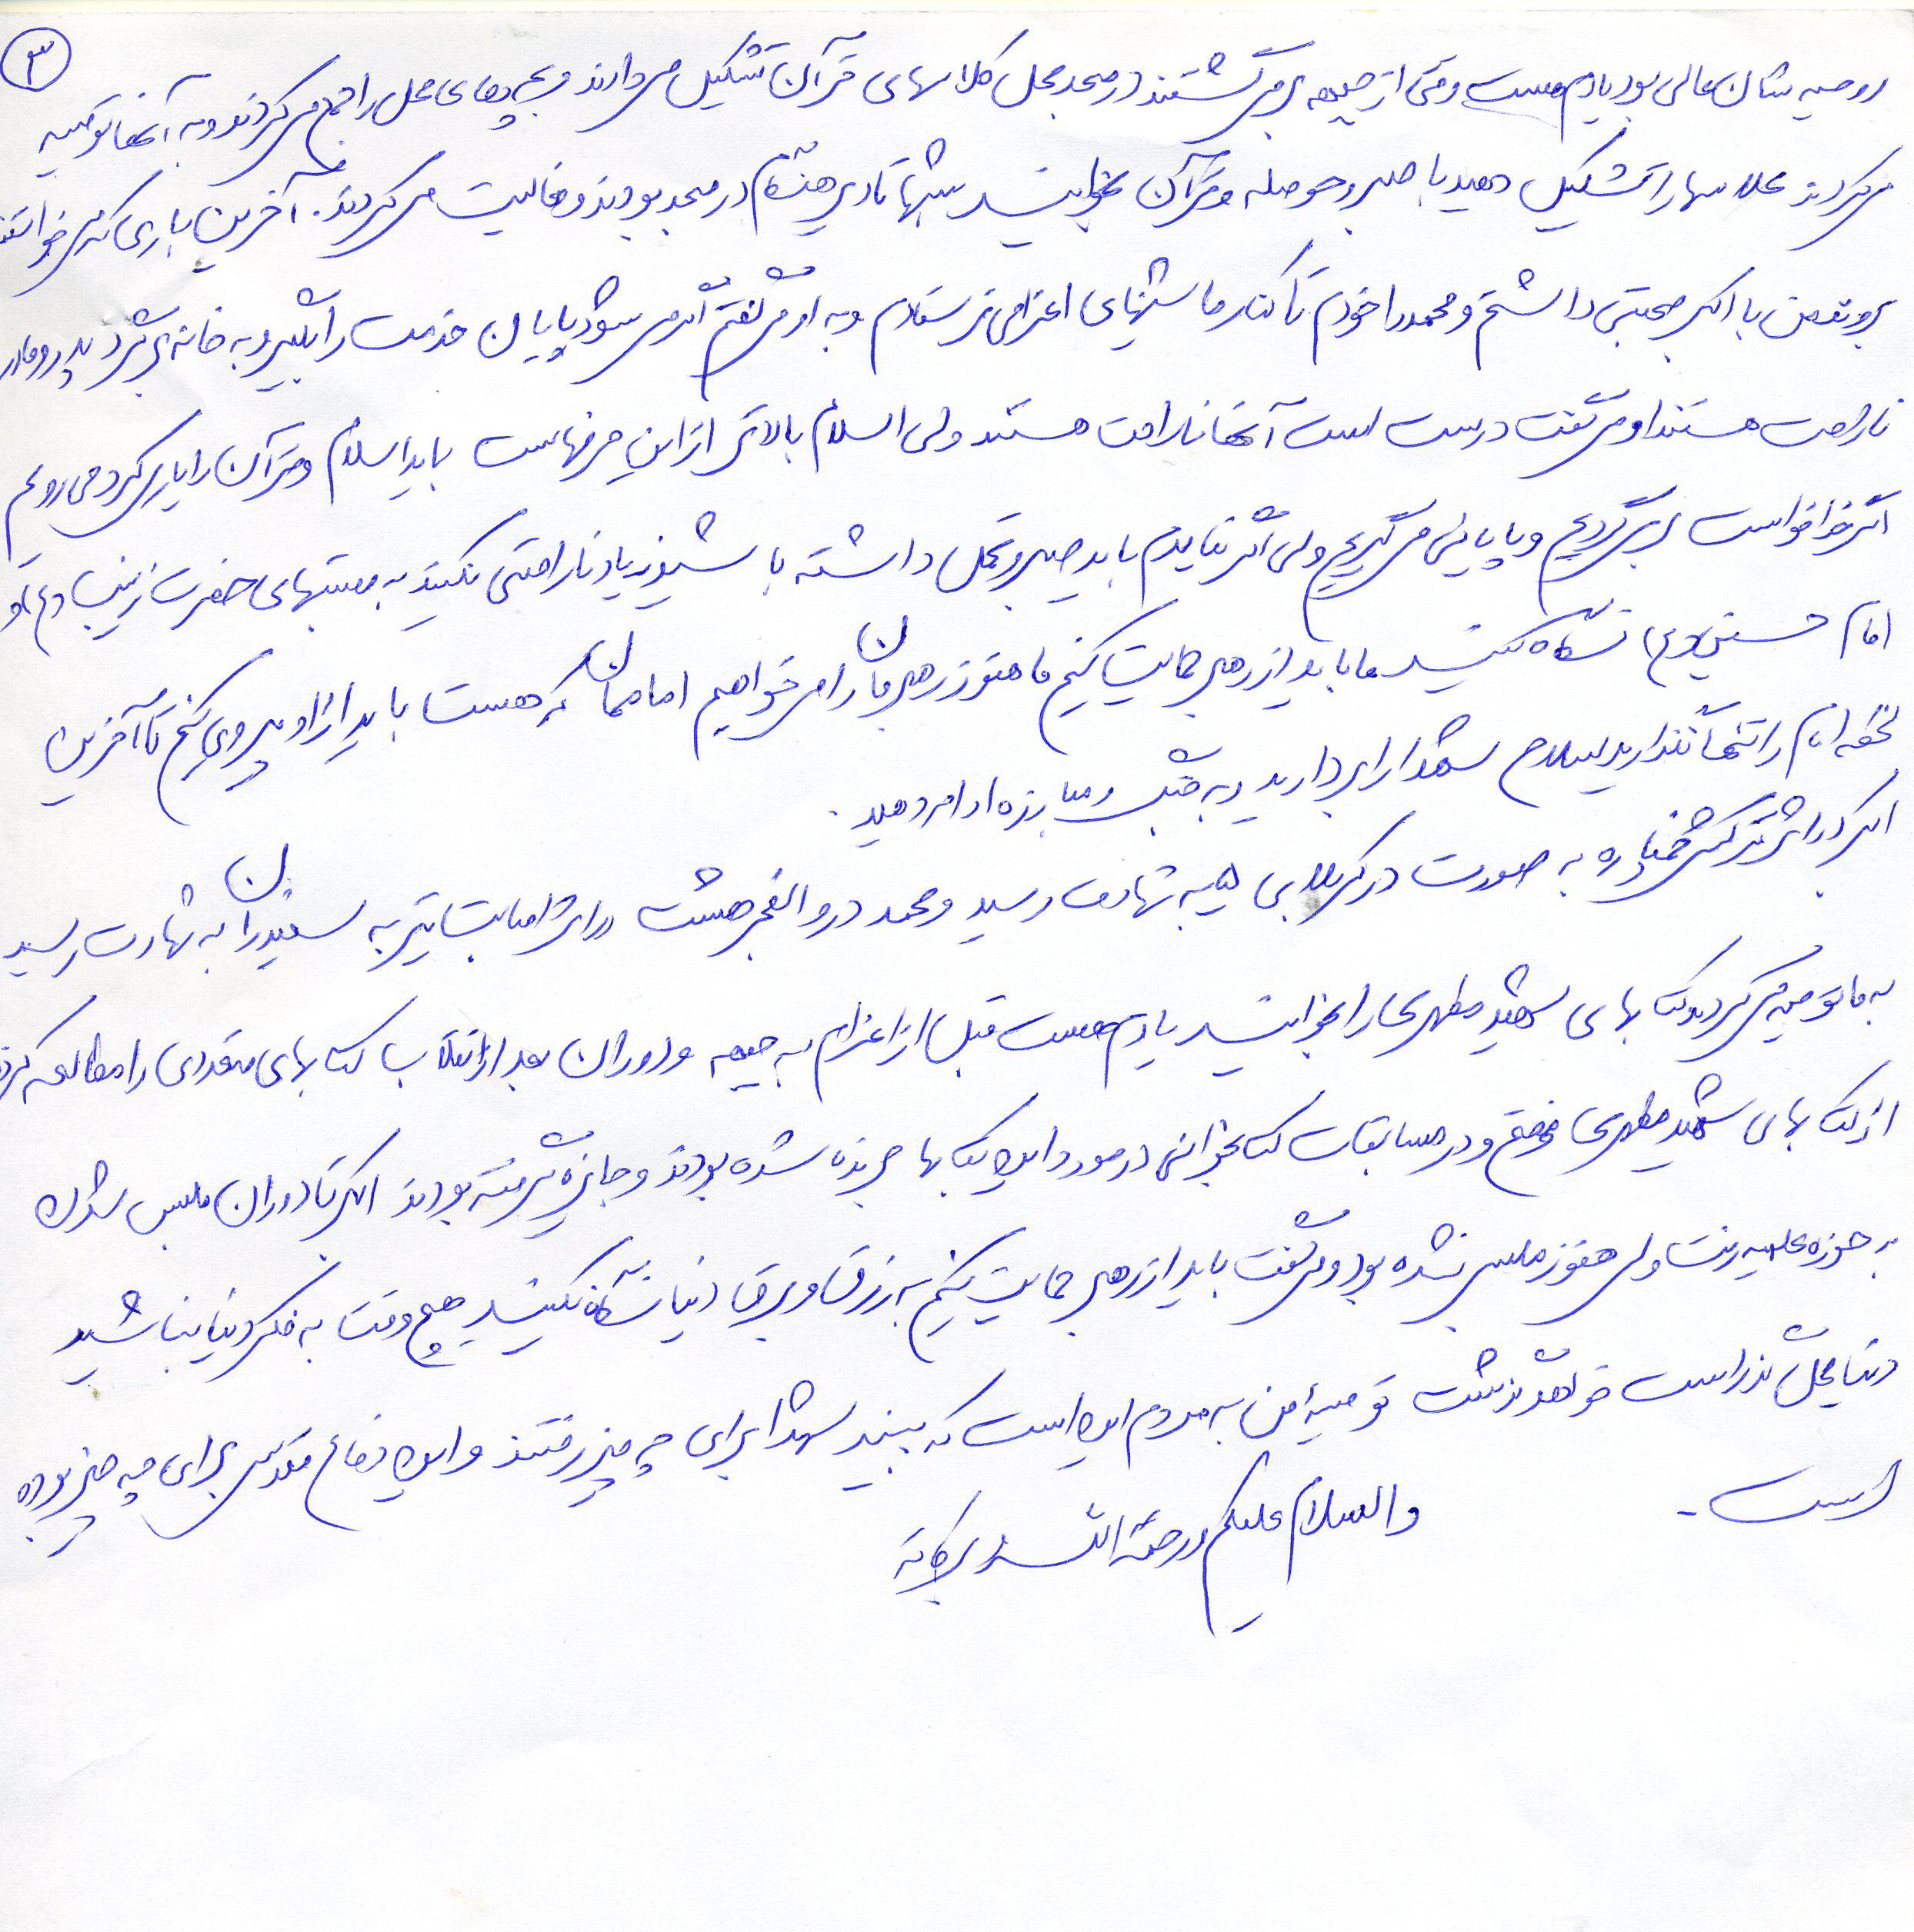 ۳
روحیه شان عالی بود یادم هست وقتی از جبهه برمی گشتند در مسجد محل کلاسهای قرآن تشکیل می دادند و بچه های محل را جمع می کردند و به آنها توصیه
می کردند کلاسها را تشکیل دهید با صبر و حوصله و قرآن بخوانید شبها تا دیر هنگام در مسجد بودند و فعالیت می کردند. آخرین باری که می خواستند
بروند من با اکبر صحبتی داشتم و محمد را خودم تا کنار ماشینهای اعزامی فرستادم و به او می گفتم اگر می شود پایان خدمت را بگیر و به خانه برگرد پدر و مادر
ناراحت هستند او می گفت درست است آنها ناراحت هستند ولی اسلام بالاتر از این حرفهاست باید اسلام و قرآن را یاری کرد می روم
اگر خدا خواست برمی گردیم و پایانی می گیریم ولی اگر نیامدیم باید صبر و تحمل داشته باشید زیاد ناراحتی نکنید به مصیبتهای حضرت زینب (س) و
امام حسین (ع) نگاه کنید ما باید از رهبر حمایت کنیم ما هنوز رهبرمان را می خواهیم اماممان که هست باید از او پیروی کنیم تا آخرین
لحظه امام را تنها نگذارید سلاح شهدا را بردارید و به جنگ و مبارزه ادامه دهید.
اکبر در اثر ترکش خمپاره به صورت در کربلای ۵ به شهادت رسید و محمد در والفجر هشت در اثر اصابت تیر به سفیدران به شهادت رسید
به ما توصیه می کردند کتابهای شهید مطهری را بخوانید یادم هست قبل از اعزام به جبهه و دوران بعد از انقلاب کتابهای متعددی را مطالعه کردند
از کتابهای شهید مطهری و در مسابقات کتابخوانی در مورد این کتابها برنده شده بودند و جایزه گرفته بودند اکبر تا دوران ملبس شدن
به حوزه علمیه رفت ولی هنوز ملبس نشده بود و می گفت باید از رهبر حمایت کنیم به زرق و برق دنیا نگاه نکنید هیچ وقت به فکر دنیا نباشید
دنیا محل گذر است خواهد گذشت توصیه من به مردم این است که ببینید شهدا برای چه چیز رفتند و این دفاع مقدس برای چه چیز بوده
است -
والسلام علیکم و رحمة الله و برکاته